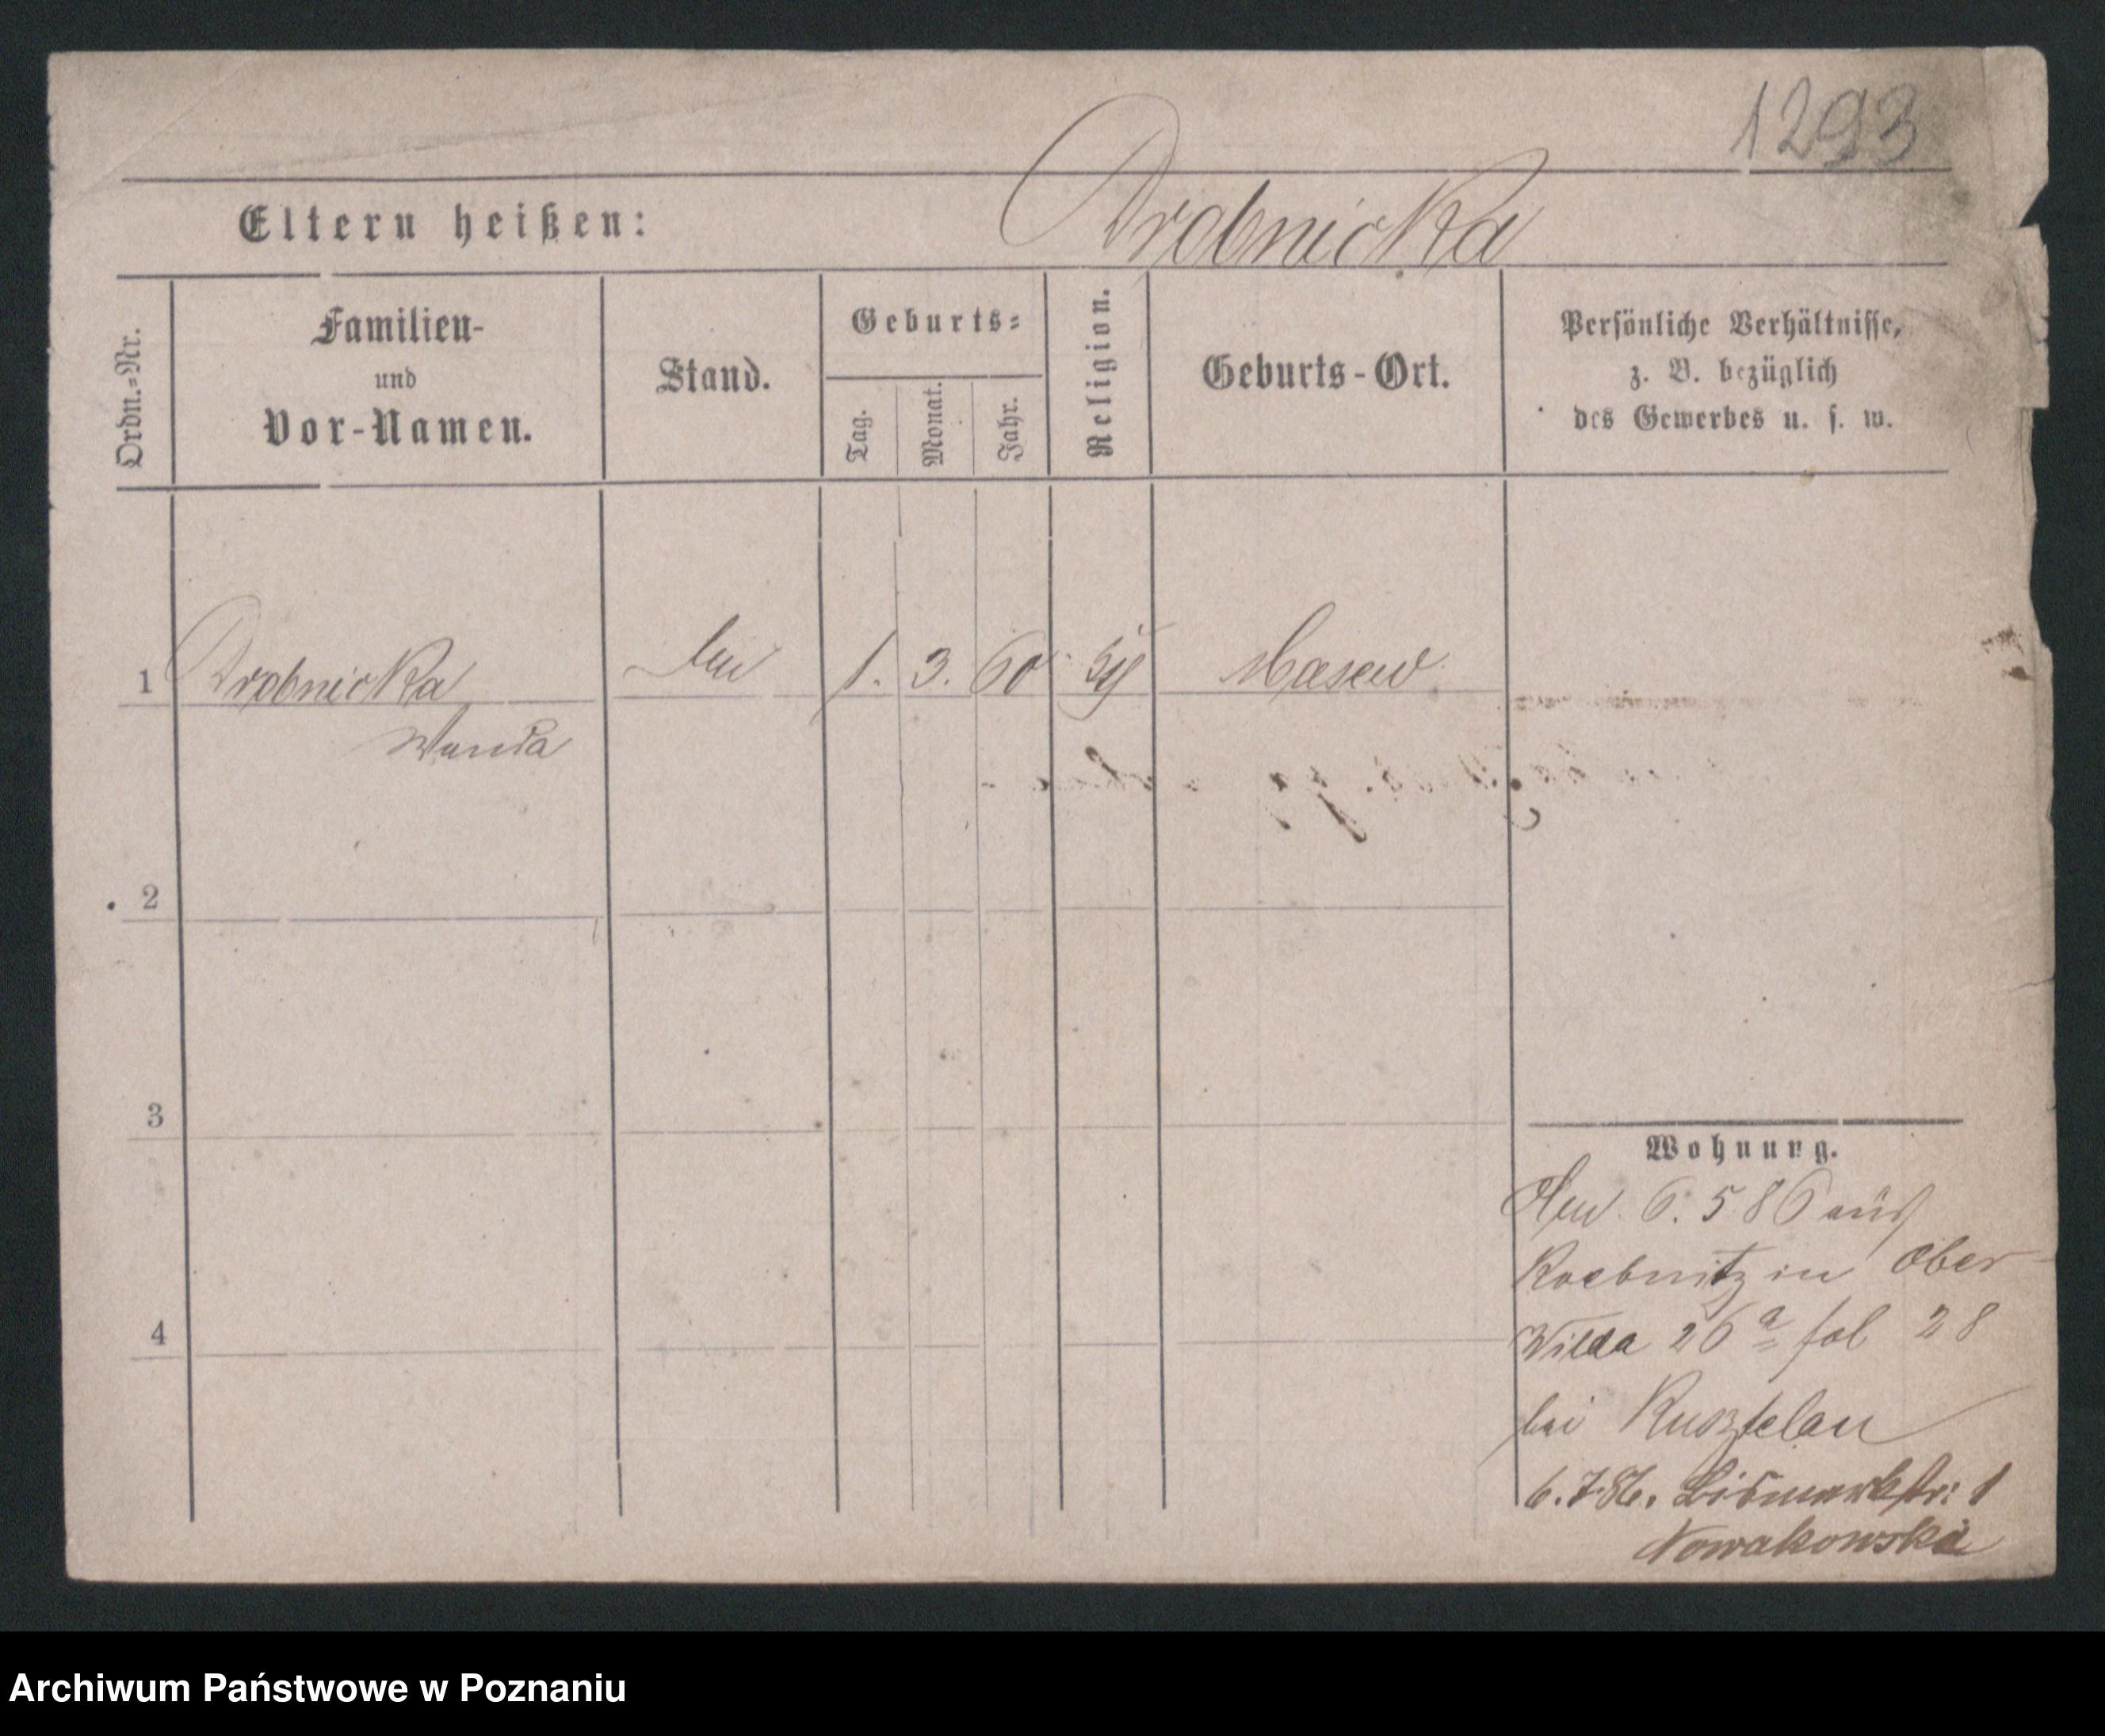 1293
Eltern heißen: Drobnicka
Ordn.=Nr.
Familien-
und
Vor-Namen.
Stand.
Geburts=
Tag.
Monat.
Jahr.
Religion.
Geburts-Ort.
Persönliche Verhältnisse,
z. B. bezüglich
des Gewerbes u. s. w.
1 Drobnicka 1. 3. 60
Wanda
2
3
4
Wohnung.
6. 5 86 aus
in Ober
Wilda 26 a fol 28
bei
6. 7. 86. Bismarkstr: 1
Nowakowska
Archiwum Państwowe w Poznaniu